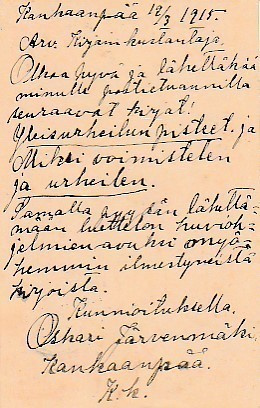 Kankaanpää 12/3 1915.
Arv. Kirjain kustantaja.
Olkaa hyvä ja lähettäkää
minulle postietuannilla
seuraavat kirjat!
Yleisurheilun pisteet. ja
Miksi voimistelen
ja urheilen.
Samalla pyydän lähettä-
mään luettelon huvioh-
jelmien avuksi myö-
hemmin ilmestyneistä
kirjoista.
Kunnioituksella.
Oskari Järvenmäki.
Kankaanpää.
K.k.